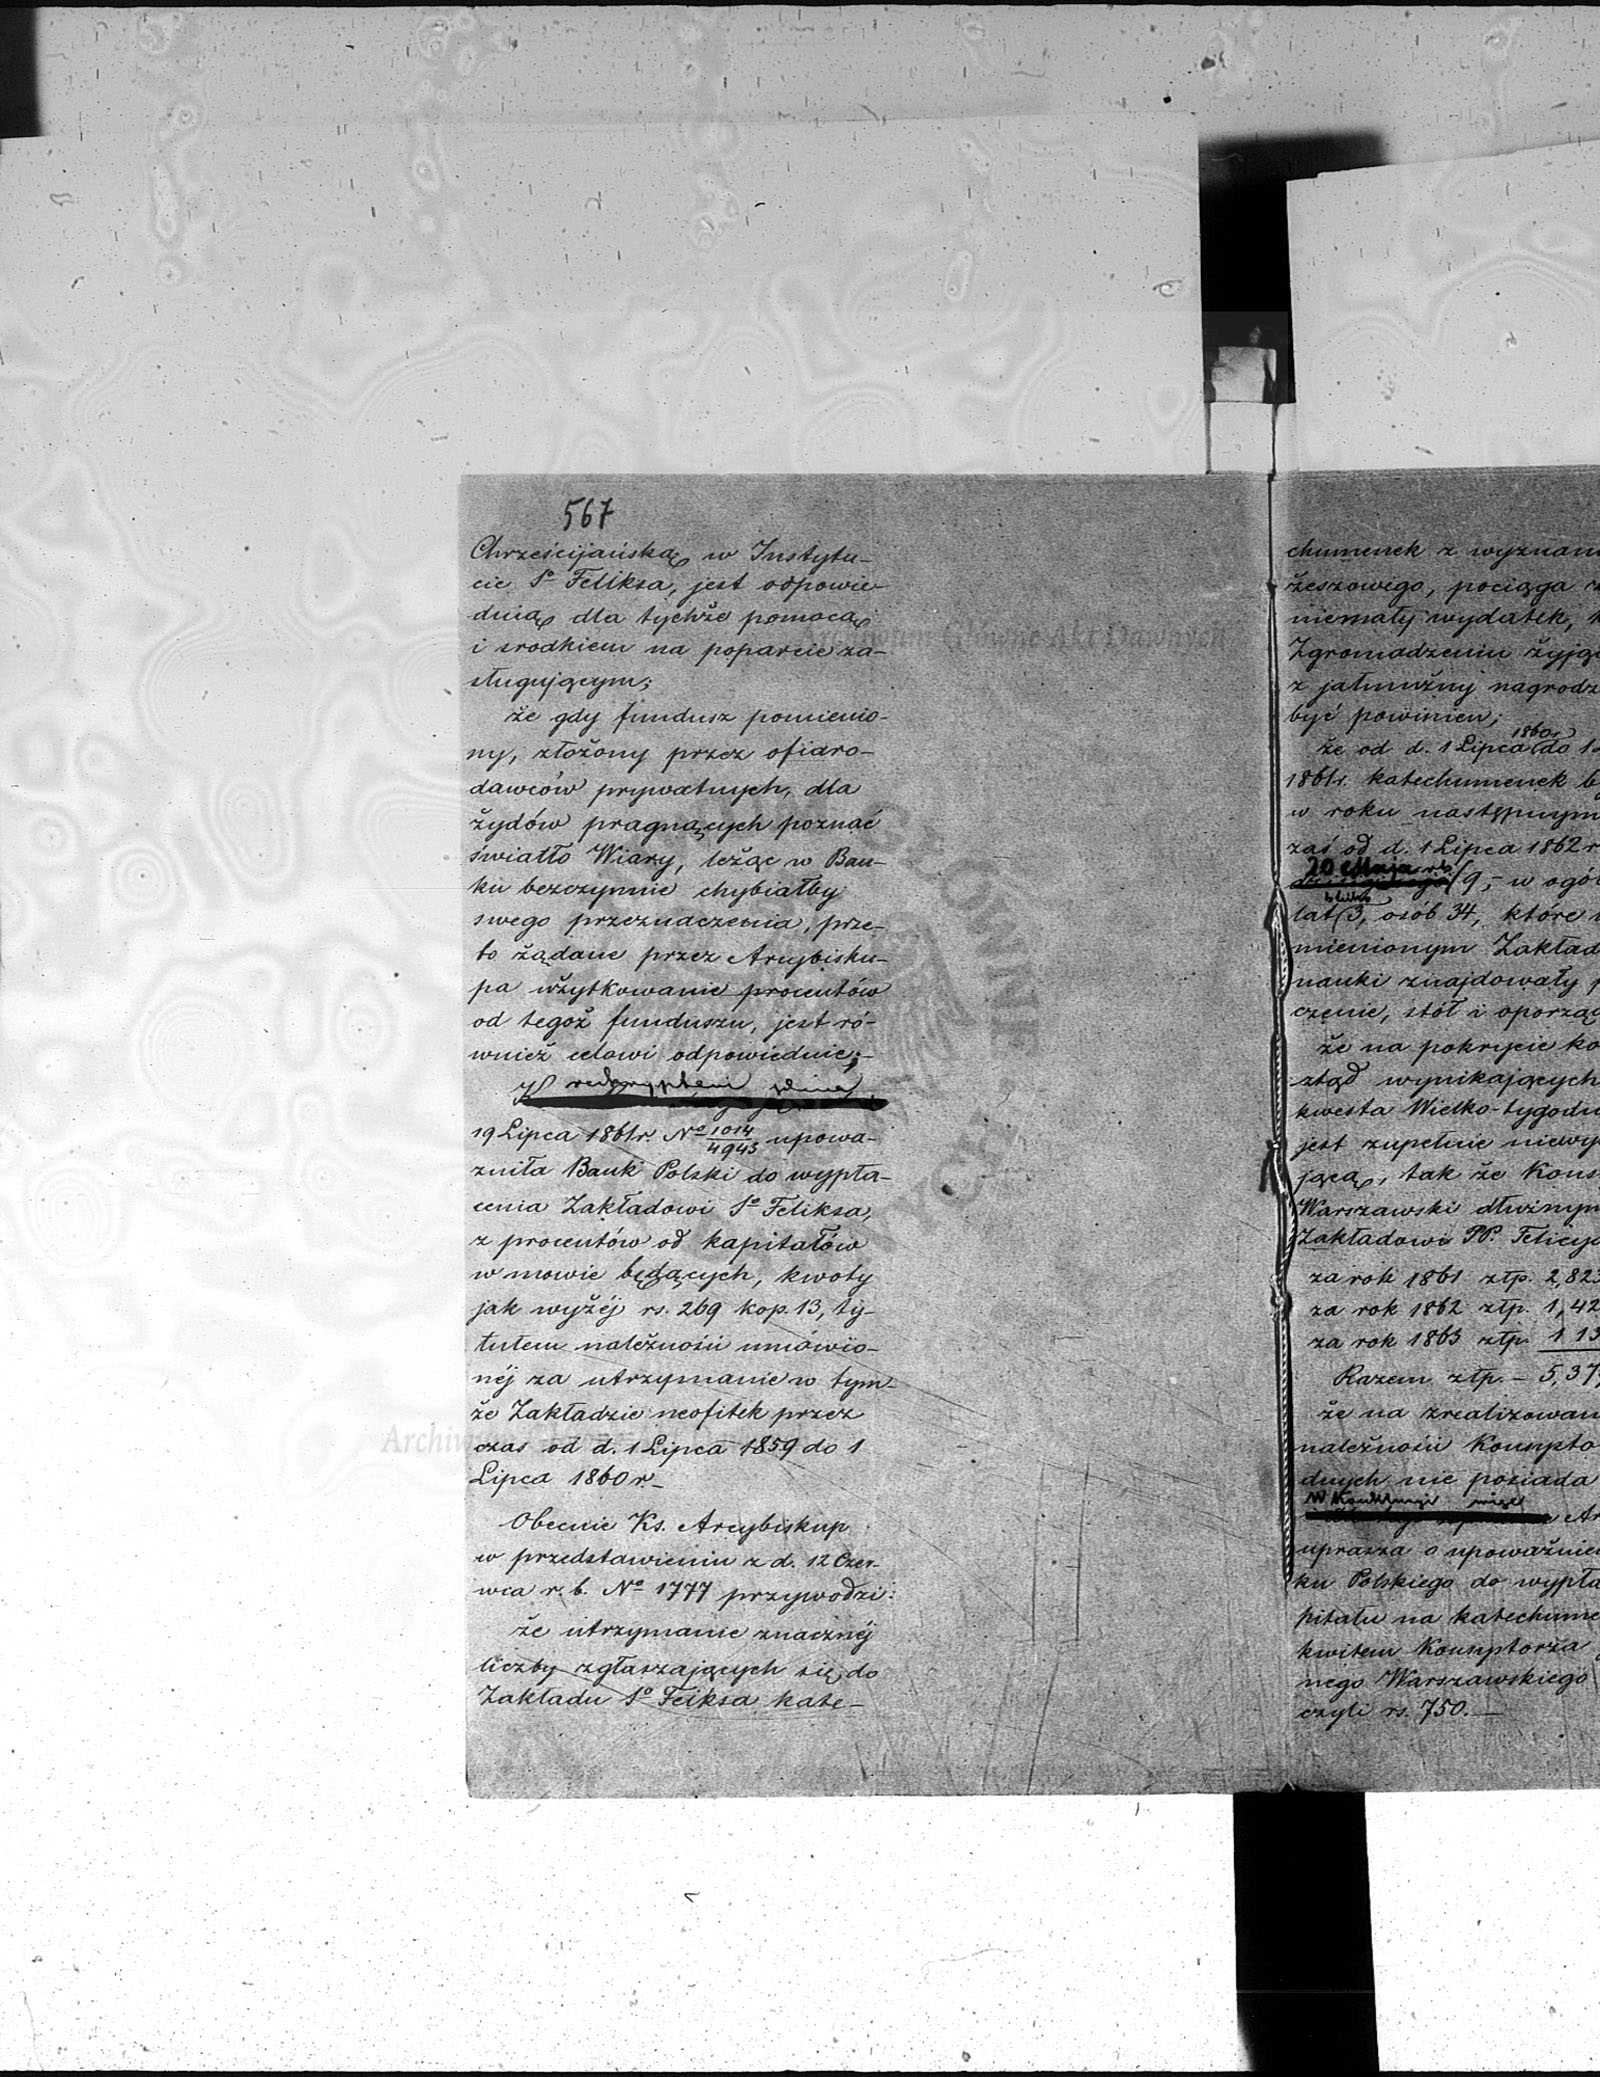 567
Chrześcijańską w Instytu-
cie Sº Feliksa, jest odpowie-
dnią dla tychże pomocą
i srodkiem na poparcie za-
sługującym;
że gdy fundusz pomienio-
ny, złożony przez ofiaro-
dawców prywatnych, dla
żydów pragnących poznać
światło Wiary, leżąc w Ban-
ku bezczynnie chybiałby
swego przeznaczenia, prze-
to żądane przez Arcybisku-
pa użytkowanie procentów
od tegoż funduszu, jest ró-
wnież celowi odpowiednie;-
reskryptem
19 Lipca 1861r. Nº 1014/4943 upowa-
żniła Bank Polski do wypła-
cenia Zakładowi Sº Feliksa,
z procentów od kapitałów
w mowie będących, kwoty
jak wyżéj rs. 269 kop. 13, ty-
tułem należności umówio-
néj za utrzymanie w tym-
że Zakładzie neofitek przez
czas od d. 1 Lipca 1859 do 1
Lipca 1860 r.-
Obecnie Ks. Arcybiskup
w przedstawieniu z d. 12 Czer-
wca r. b. Nº 1777 przywodzi:
że utrzymanie znacznéj
liczby zgłaszających się do
Zakładu Sº Feiksa kate-
chumenek z wyznan
żeszowego, pociąga z
niemały wydatek, k
Zgromadzeniu żyją
z jałmużny nagrodz
być powinien;
że od d. 1 Lipca 1860r. do 1
1861r. katechumenek b
w roku następnym
zaś od d. 1 Lipca 1862 r
20 Maja r.b. 9,- w ogó
lat 3, osób 34, które
mienionym Zakład
nauki znajdowały p
czenie, stół i oporzą
że na pokrycie ko
ztąd wynikających
kwesta Wielko-tygodn
jest zupełnie niewy
jącą, tak że Kons
Warszawski dłużnym
Zakładowi PP. Felicy
za rok 1861 złp. 2,823
za rok 1862 złp. 1,42
za rok 1863 złp. 1 13
Razem złp. - 5,37
że na zrealizowan
należności Konsysto
dnych nie posiada
W Konkluzyi więc Ar
uprasza o upoważnie
ku Polskiego do wypła
pitału na katechume
kwitem Konsystorza
nego Warszawskiego
czyli rs. 750.-
Archiwum Główne Akt Dawnych